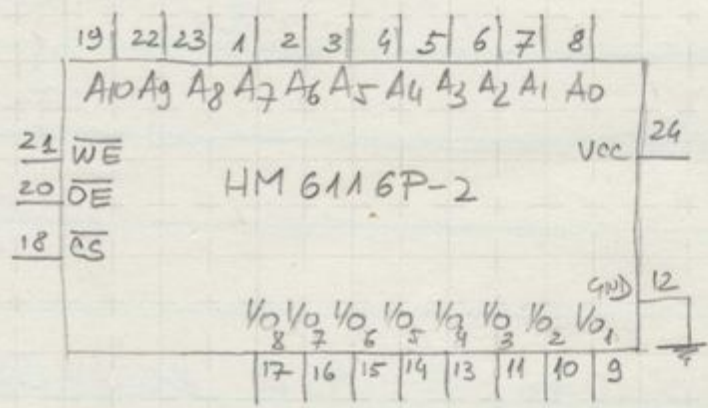 19 22 23 1 2 3 4 5 6 7 8
A10 A9 A8 A7 A6 A5 A4 A3 A2 A1 A0
21 WE
VCC 24
20 OE
HM 6116P-2
18 CS
GND 12
I/O8 I/O7 I/O6 I/O5 I/O4 I/O3 I/O2 I/O1
17 16 15 14 13 11 10 9